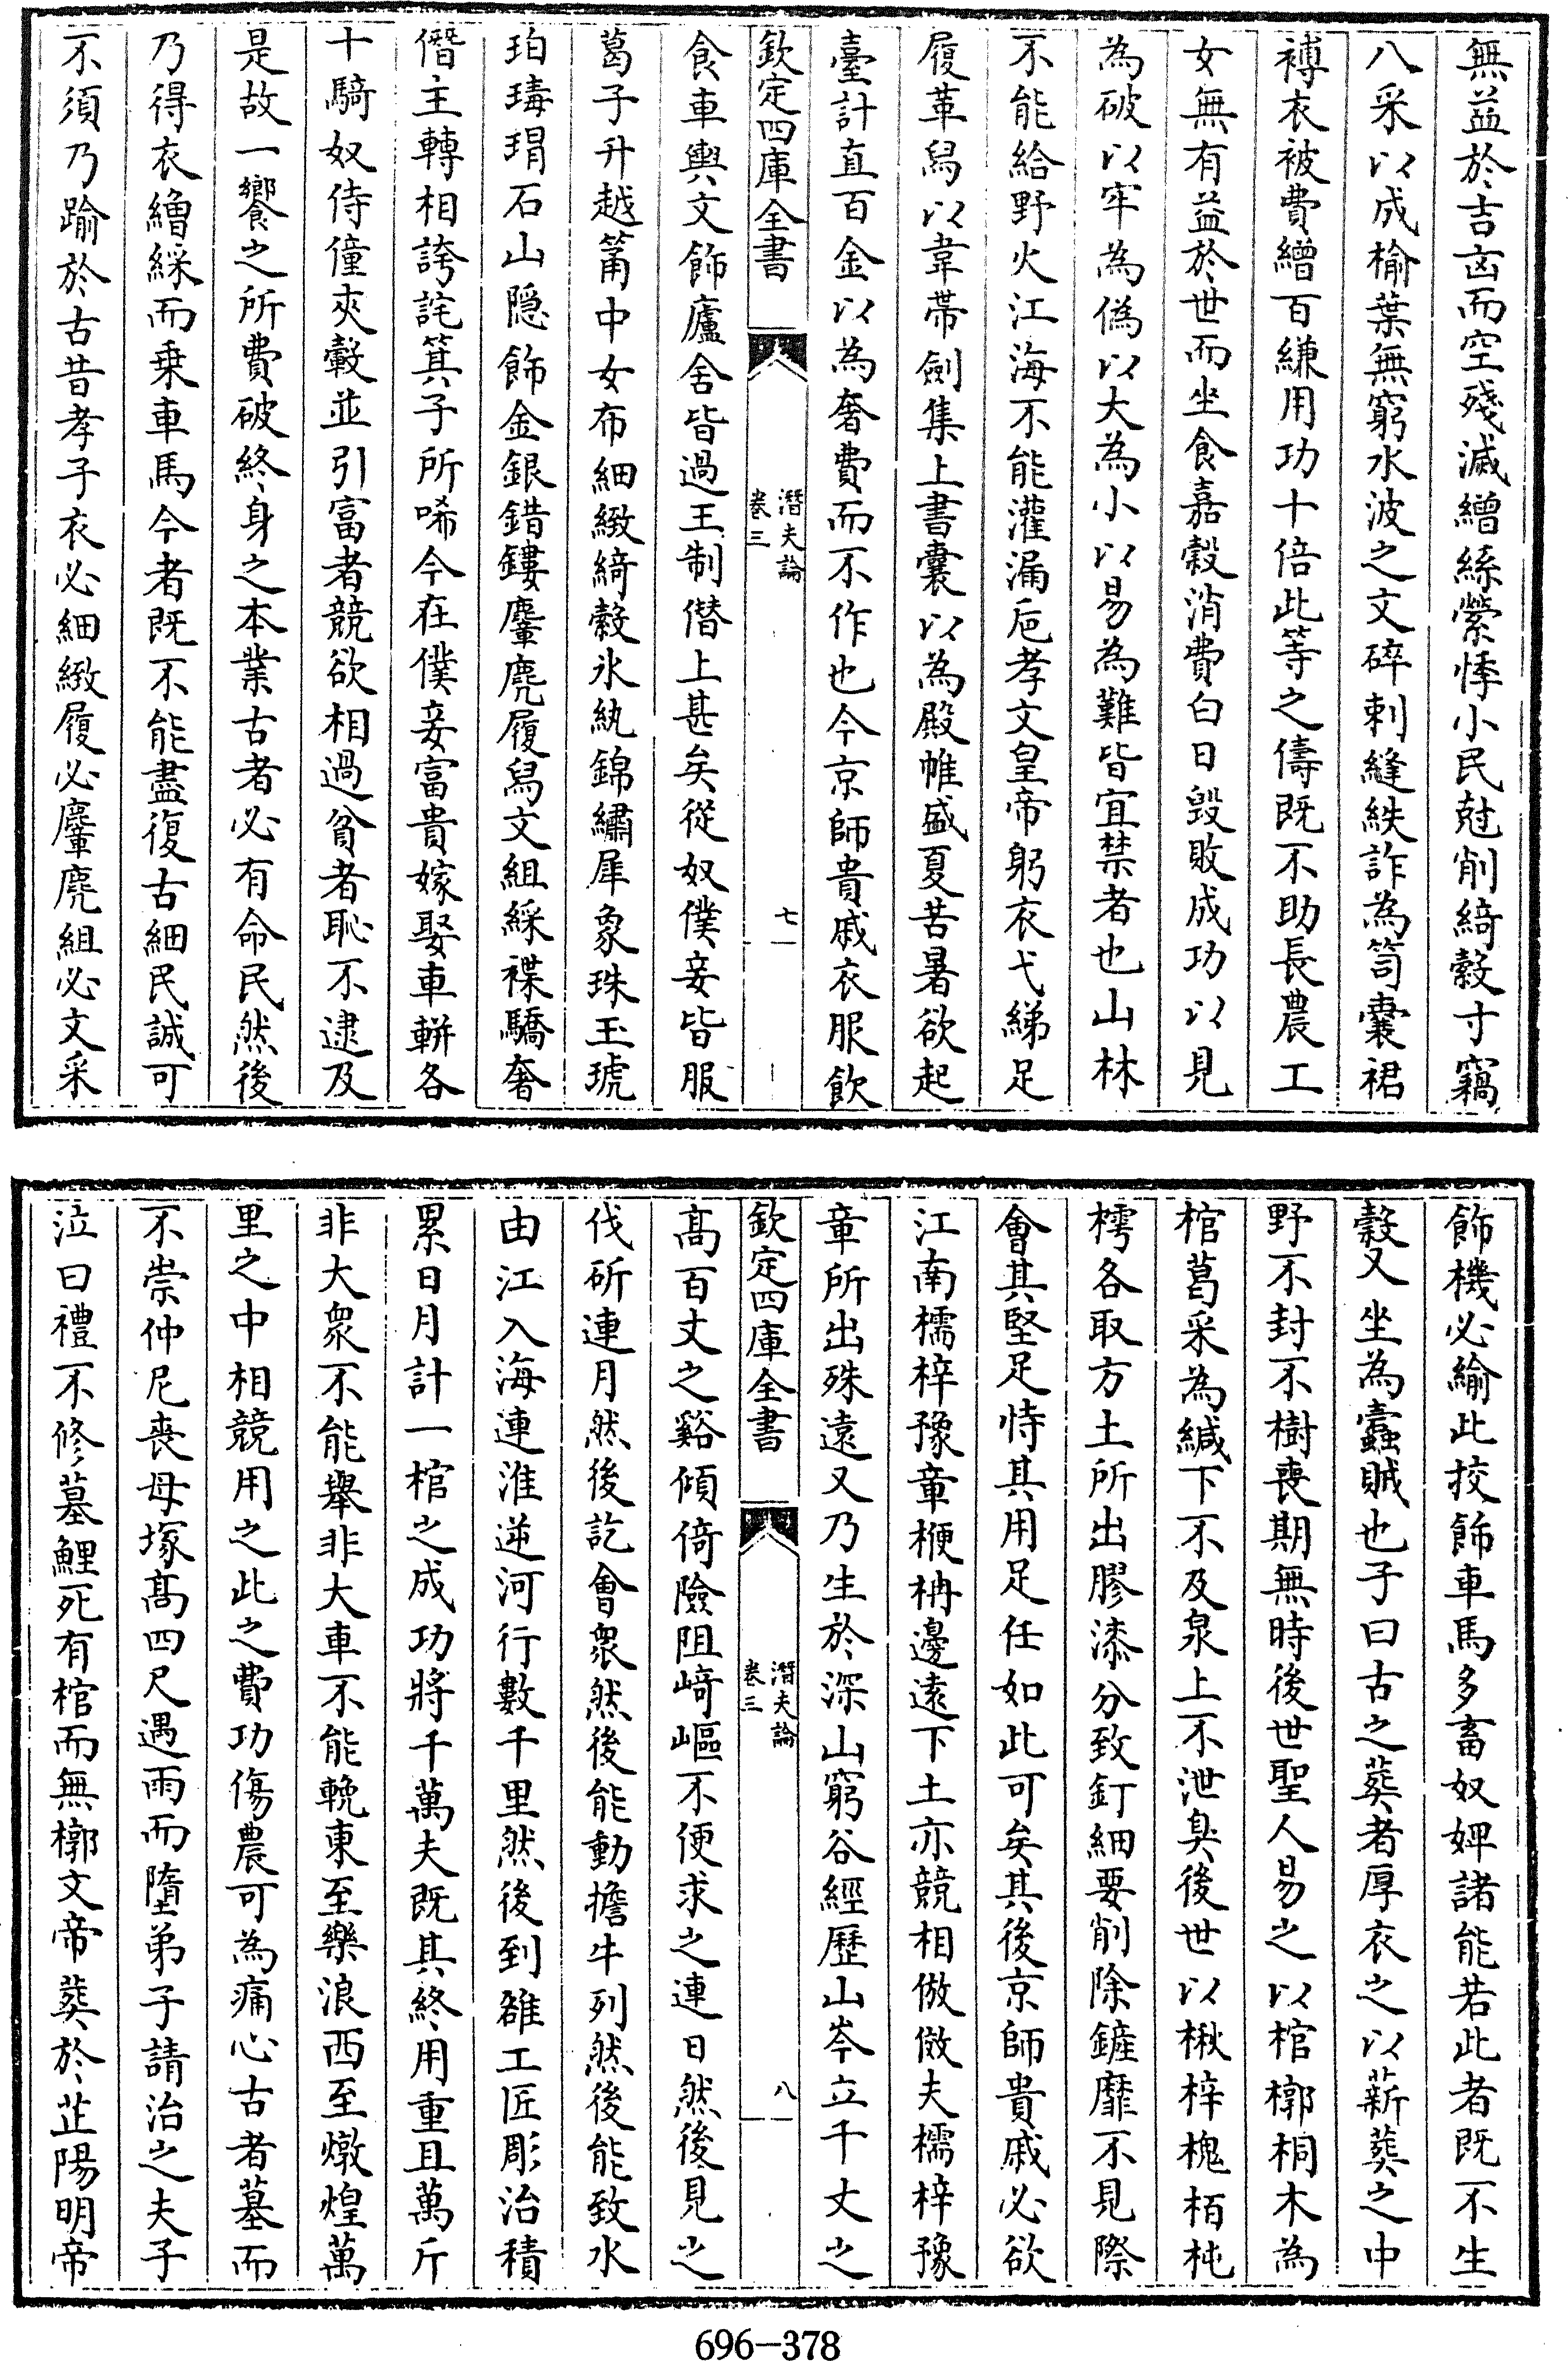 無益於吉凶而空殘滅繒絲縈悸小民尅削綺縠寸竊
八采以成榆葉無窮水波之文碎刺縫紩詐為笥囊裙
襡衣被費繒百縑用功十倍此等之儔既不助長農工
女無有益於世而坐食嘉穀消費白日毀敗成功以見
為破以牢為偽以大為小以易為難皆宜禁者也山林
不能給野火江海不能灌漏巵孝文皇帝躬衣弋綈足
履革舄以韋帶劍集上書囊以為殿帷盛夏苦暑欲起
臺計直百金以為奢費而不作也今京師貴戚衣服飲
欽定四庫全書
潛夫論
卷三
七
食車輿文飾廬舍皆過王制僣上甚矣從奴僕妾皆服
葛子升越筩中女布細緻綺縠氷紈錦繡犀象珠玉琥
珀瑇瑁石山隱飾金銀錯鏤麞麂履舄文組綵褋驕奢
僭主轉相誇詫箕子所唏今在僕妾富貴嫁娶車軿各
十騎奴侍僮夾轂並引富者競欲相過貧者恥不逮及
是故一饗之所費破終身之本業古者必有命民然後
乃得衣繒綵而乗車馬今者既不能盡復古細民誠可
不須乃踰於古昔孝子衣必細緻履必麞麂組必文采
飾機必緰此挍飾車馬多畜奴婢諸能若此者既不生
穀又坐為蠹賊也子曰古之葬者厚衣之以薪葬之中
野不封不樹喪期無時後世聖人易之以棺槨桐木為
棺葛采為緘下不及泉上不泄臭後世以楸梓槐栢杶
樗各取方土所出膠漆分致釘細要削除鏟靡不見際
會其堅足恃其用足任如此可矣其後京師貴戚必欲
江南檽梓豫章楩柟邊遠下土亦競相倣傚夫檽梓豫
章所出殊遠又乃生於深山窮谷經歷山岑立千丈之
欽定四庫全書
潛夫論
卷三
八
髙百丈之谿傾倚險阻﨑嶇不便求之連日然後見之
伐斫連月然後訖會衆然後能動擔牛列然後能致水
由江入海連淮逆河行數千里然後到雒工匠彫治積
累日月計一棺之成功將千萬夫既其終用重且萬斤
非大衆不能舉非大車不能輓東至樂浪西至燉煌萬
里之中相競用之此之費功傷農可為痛心古者墓而
不崇仲尼喪母塚髙四尺遇雨而墮弟子請治之夫子
泣曰禮不修墓鯉死有棺而無槨文帝葬於芷陽明帝
696-378